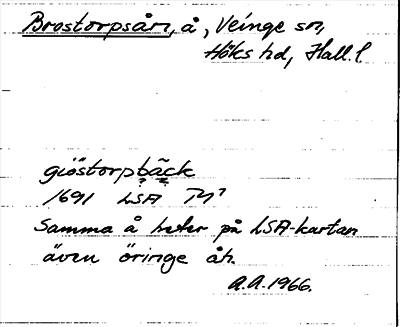 Brostorpsån, å, Veinge sn,
Höks hd, Hall. l.
giöstorpbäck
1691 LSA
Samma å heter på LSA-kartan
även öringe åh.
A.A. 1966.